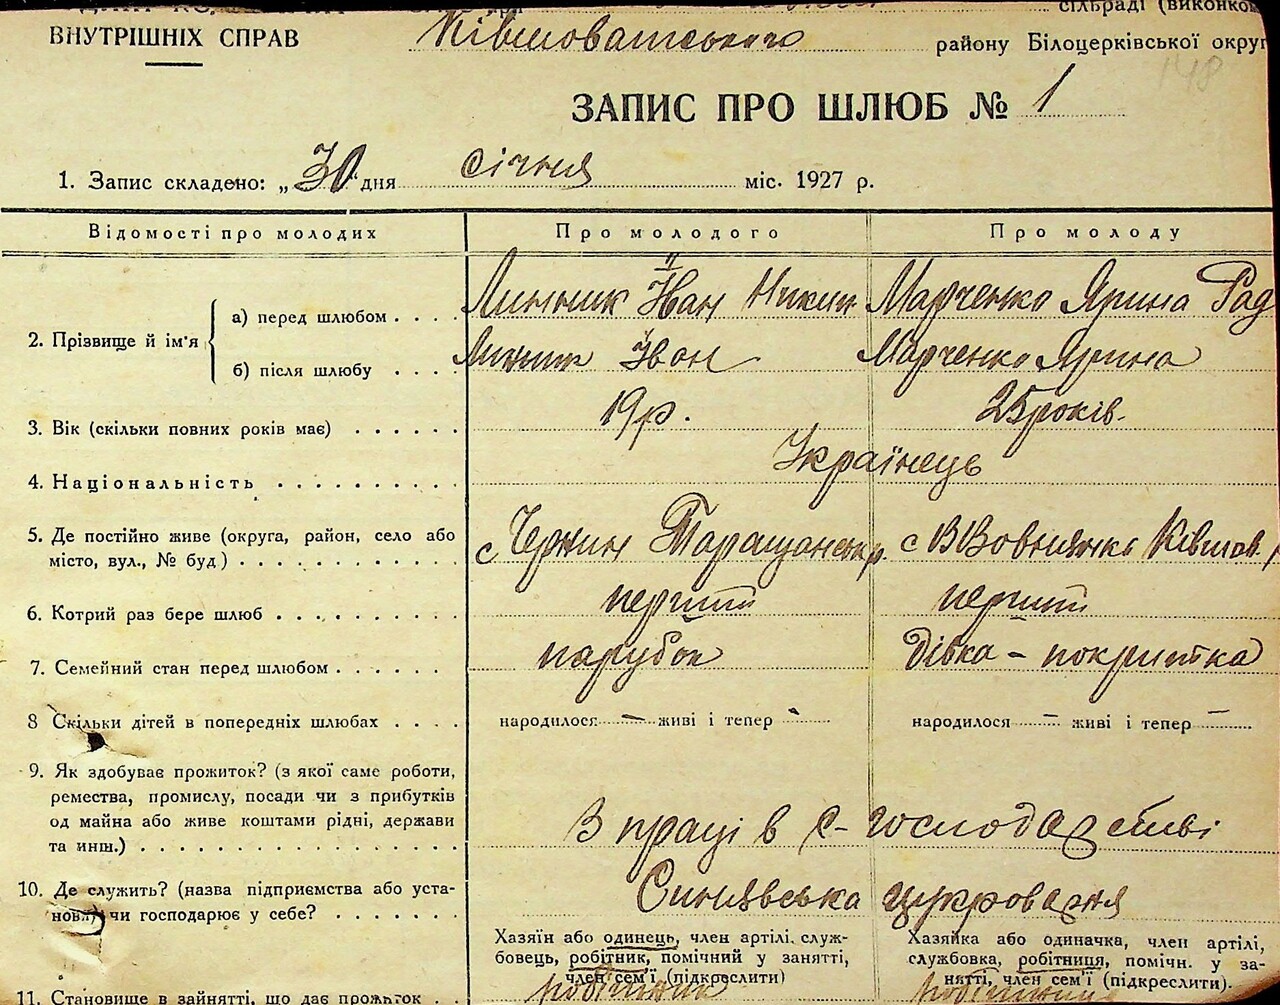 сільраді (виконко
ВНУТРІШНІХ СПРАВ Ківшоватського району Білоцерківської округ
148
ЗАПИС ПРО ШЛЮБ № 1
1. Запис складено: „30“ дня січня міс. 1927 р.
Відомості про молодих Про молодого Про молоду
2. Прізвище й ім'я
а) перед шлюбом . . . . Линник Іван Никип Марченко Ярина Рад
б) після шлюбу . . . . Линник Іван Марченко Ярина
3. Вік (скільки повних років має) . . . . . . 19 р. 25 років.
4. Національність . . . . . . . . . . Українець
5. Де постійно живе (округа, район, село або
місто, вул., № буд) . . . . . . . . . . . с Чернин Таращанськ р. с В Вовнянка Ківшов.
6. Котрий раз бере шлюб . . . . . . . . . перший перший
7. Семейний стан перед шлюбом . . . . . . парубок Дівка - покритка
8 Скільки дітей в попередніх шлюбах . . . . народилося — живі і тепер - народилося — живі і тепер —
9. Як здобуває прожиток? (з якої саме роботи,
ремества, промислу, посади чи з прибутків
од майна або живе коштами рідні, держави
та инш.) . . . . . . . . . . . . . . . . З праці в с-господарстві
10. Де служить? (назва підприємства або уста-
нови) чи господарює у себе? . . . . . . . Синявська цукроварня
Хазяїн або одинець, член артілі, служ-
бовець, робітник, помічний у занятті,
член сем'ї (підкреслити)
робітник
Хазяйка або одиначка, член артілі,
службовка, робітниця, помічн. у за-
нятті, член сем'ї (підкреслити).
11. Становище в зайнятті, що дає прожиток . .